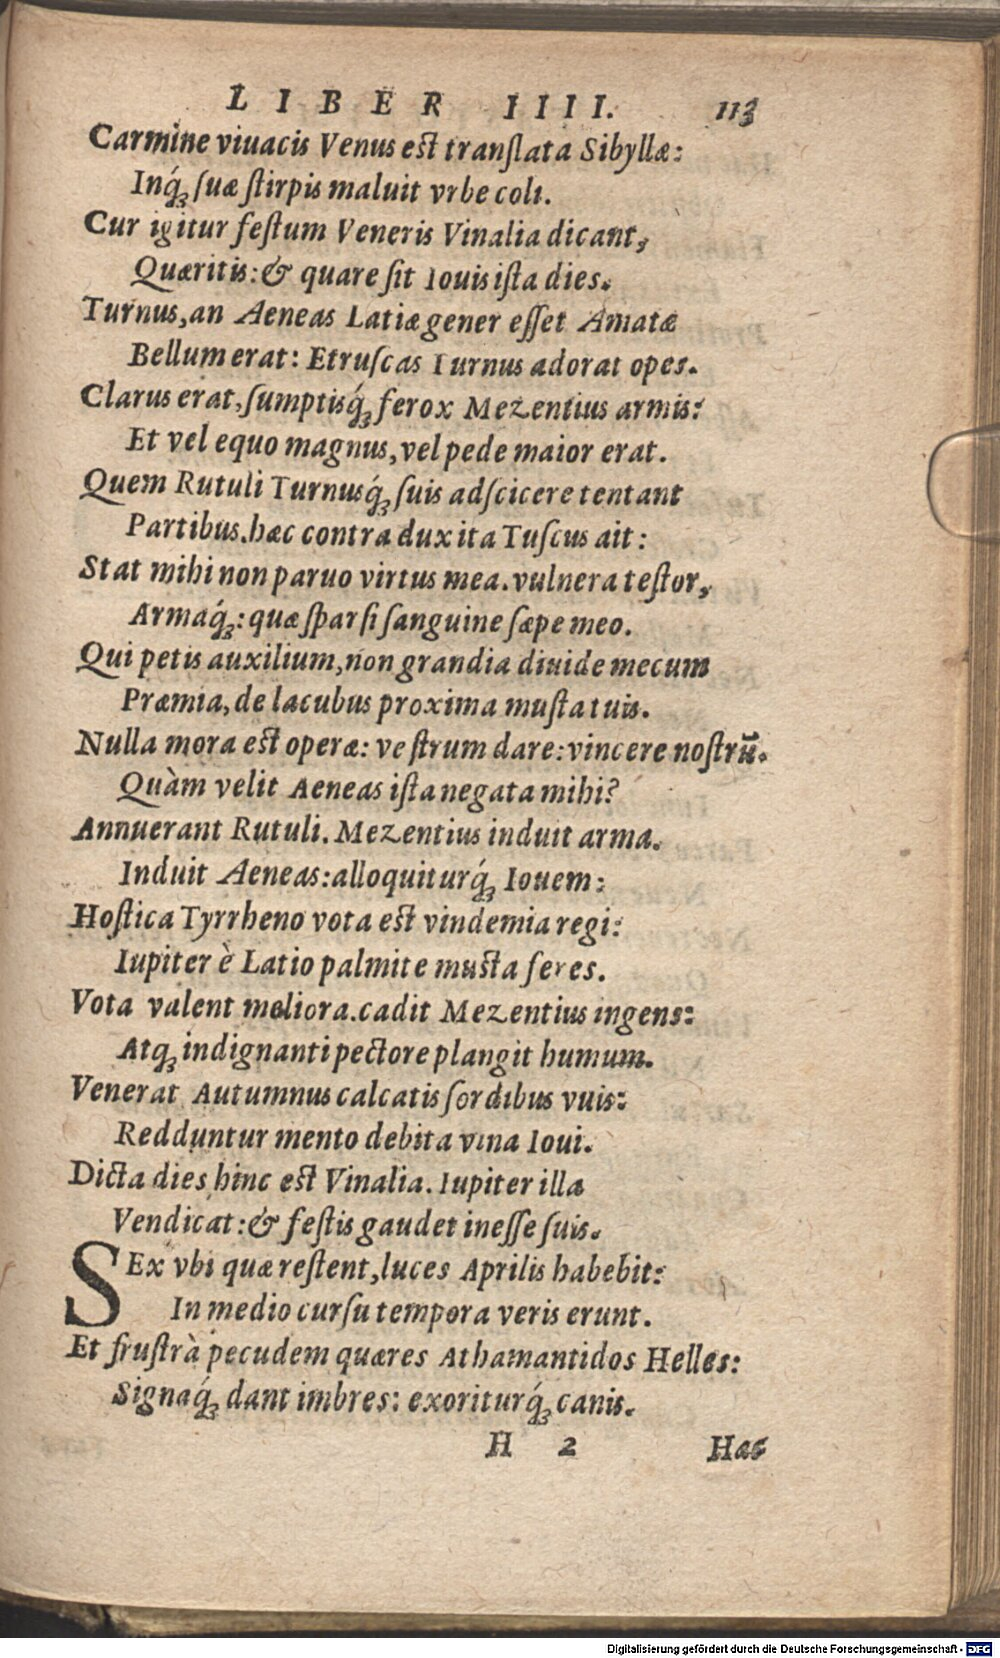 LIBER IIII. 113
Carmine viuacis Venus est tranſlata Sibyllæ:
Inq́ꝫ ſuæ ſtirpis maluit vrbe coli.
Cur igitur feſtum Veneris Vinalia dicant,
Quæritis: & quare ſit Iouis iſta dies.
Turnus, an Aeneas Latiæ gener eſſet Amatæ
Bellum erat: Etruſcas Turnus adorat opes.
Clarus erat, ſumptisq́ꝫ ferox Mezentius armis:
Et vel equo magnus, vel pede maior erat.
Quem Rutuli Turnusq́ꝫ ſuis adſcicere tentant
Partibus. hæc contra dux ita Tuſcus ait:
Stat mihi non paruo virtus mea. vulnera teſtor,
Armaq́ꝫ: quæ ſparſi ſanguine ſæpe meo.
Qui petis auxilium, non grandia diuide mecum
Præmia, de lacubus proxima muſta tuis.
Nulla mora est operæ: veſtrum dare: vincere noſtrū.
Quàm velit Aeneas iſta negata mihi?
Annuerant Rutuli. Mezentius induit arma.
Induit Aeneas: alloquiturq́ꝫ Iouem:
Hoſtica Tyrrheno vota est vindemia regi:
Iupiter è Latio palmite musta feres.
Vota valent meliora. cadit Mezentius ingens:
Atqꝫ indignanti pectore plangit humum.
Venerat Autumnus calcatis ſordibus vuis:
Redduntur mento debita vina Ioui.
Dicta dies hinc est Vinalia. Iupiter illa
Vendicat: & feſtis gaudet ineſſe ſuis.
SEx vbi quæ reſtent, luces Aprilis habebit:
In medio curſu tempora veris erunt.
Et fruſtrà pecudem quæres Athamantidos Helles:
Signaq́ꝫ dant imbres: exoriturq́ꝫ canis.
H 2 Hac
Digitalisierung gefördert durch die Deutsche Forschungsgemeinschaft - DFG